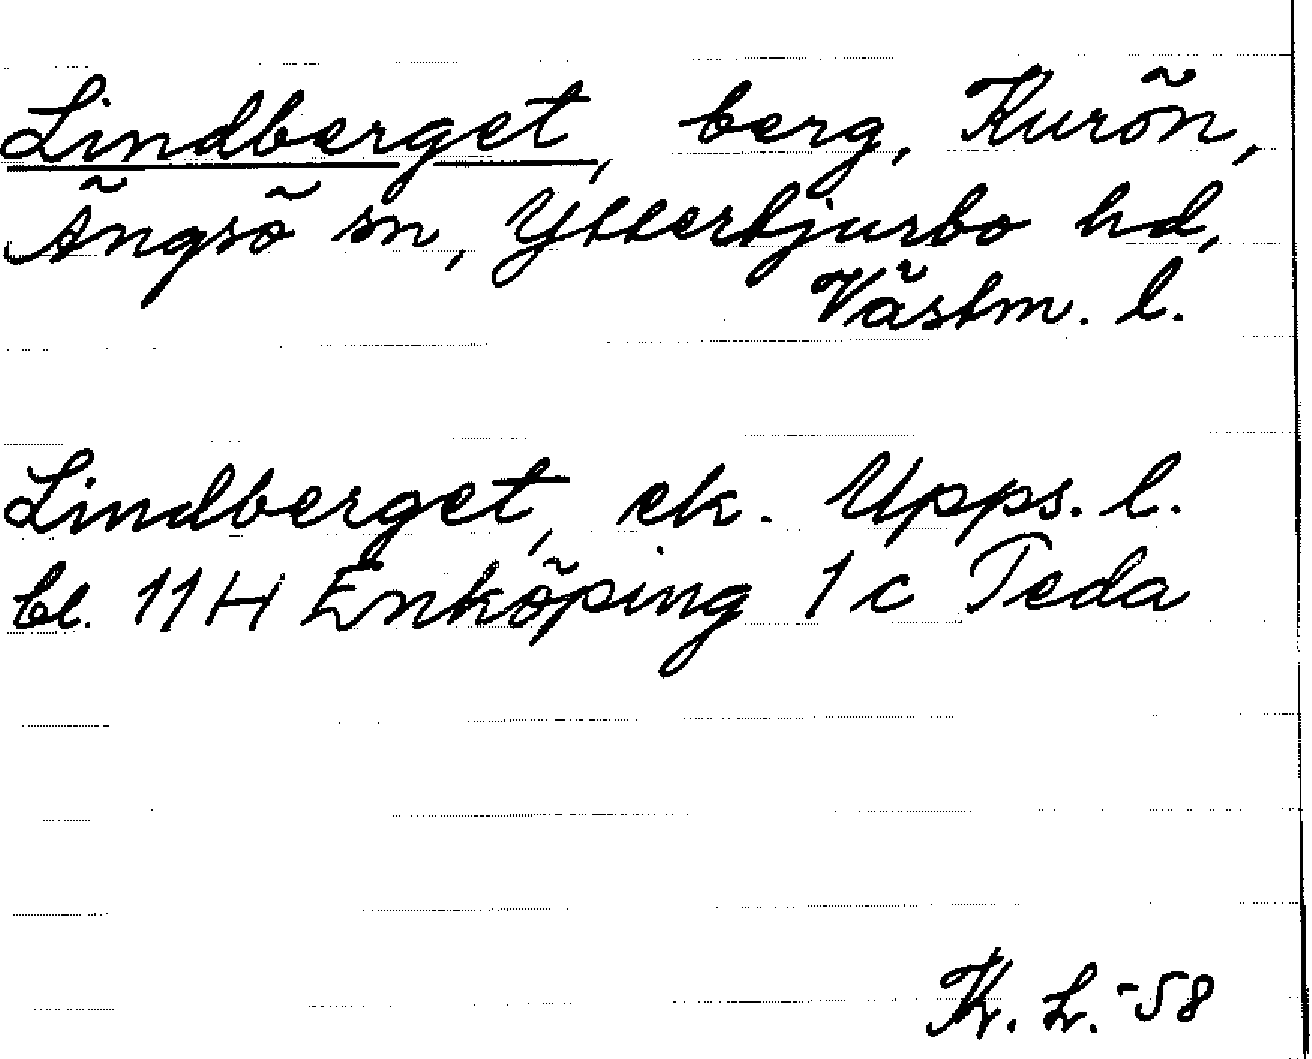 Lindberget, berg, Kurön,
Ängsö sn, Yttertjurbo hd,
Västm. l.
Lindberget, ek. Upps. l.
bl. 11H Enköping 1c Teda
K. L. -58